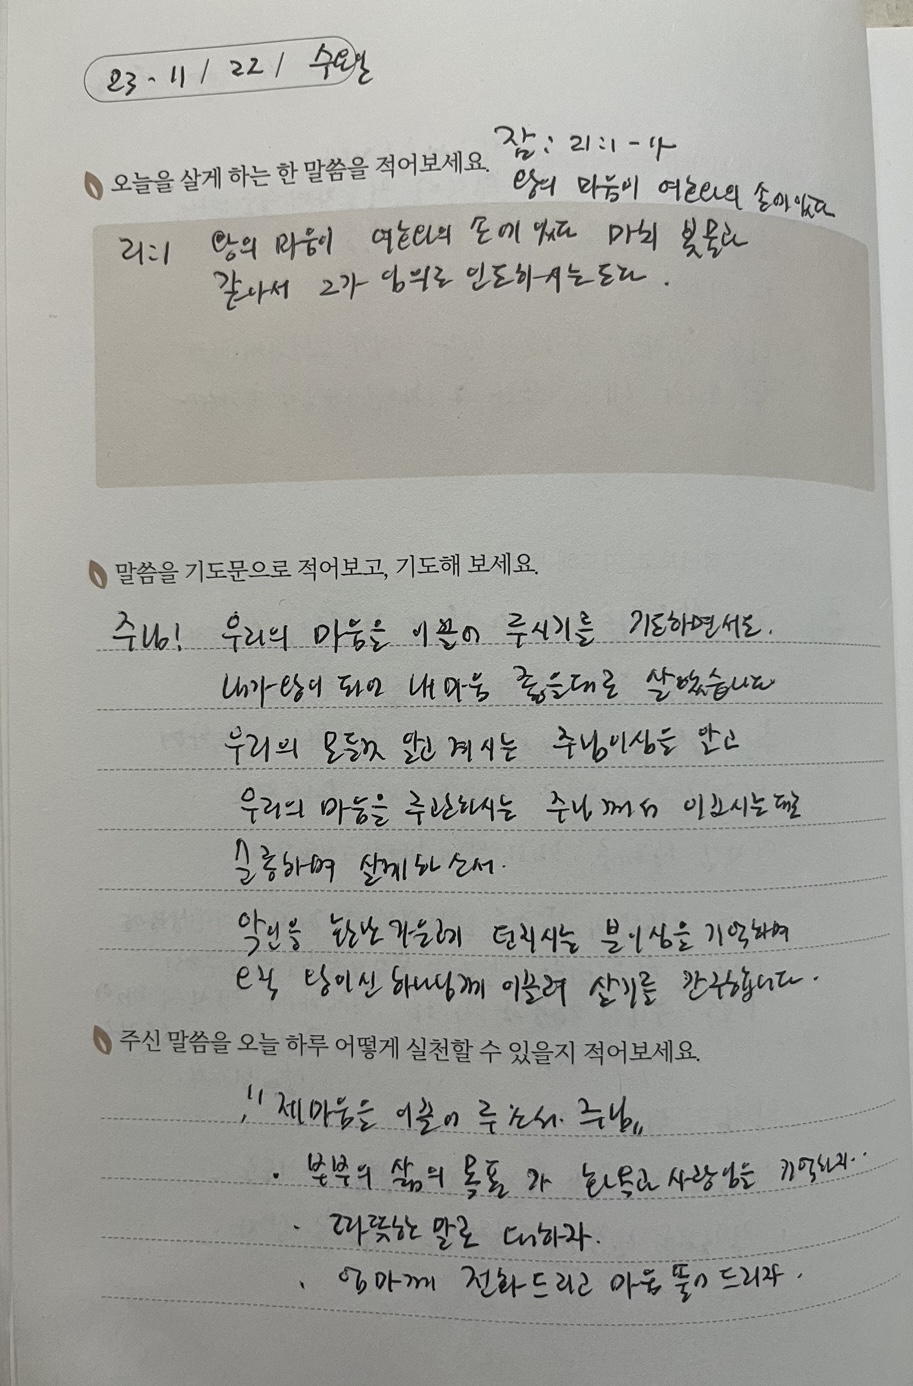 23-11/22/ 수요일
잠: 21:1-4
오늘을 살게 하는 한 말씀을 적어보세요.
왕의 마음이 여호와의 손에 있다
21:1 왕의 마음이 여호와의 손에 있다 마치 봇물과
같아서 그가 임의로 인도하시는도다.
말씀을 기도문으로 적어보고, 기도해 보세요.
주님! 우리의 마음을 이끌어 주시기를 기도하면서도.
내가 왕이 되어 내 마음 좋을대로 살았습니다
우리의 모든것 알고 계시는 주님이심을 알고
우리의 마음을 주관하시는 주님께서 이끄시는대로
순종하며 살게 하소서.
악인을 환난 가운데 던지시는 분이심을 기억하며
오직 왕이신 하나님께 이끌려 살기를 간구합니다.
주신 말씀을 오늘 하루 어떻게 실천할 수 있을지 적어보세요.
"제 마음을 이끌어 주소서. 주님"
· 부부의 삶의 목표가 화목과 사랑임을 기억하자..
· 따뜻한 말로 대하자.
· 엄마께 전화드리고 마음 풀어 드리자.